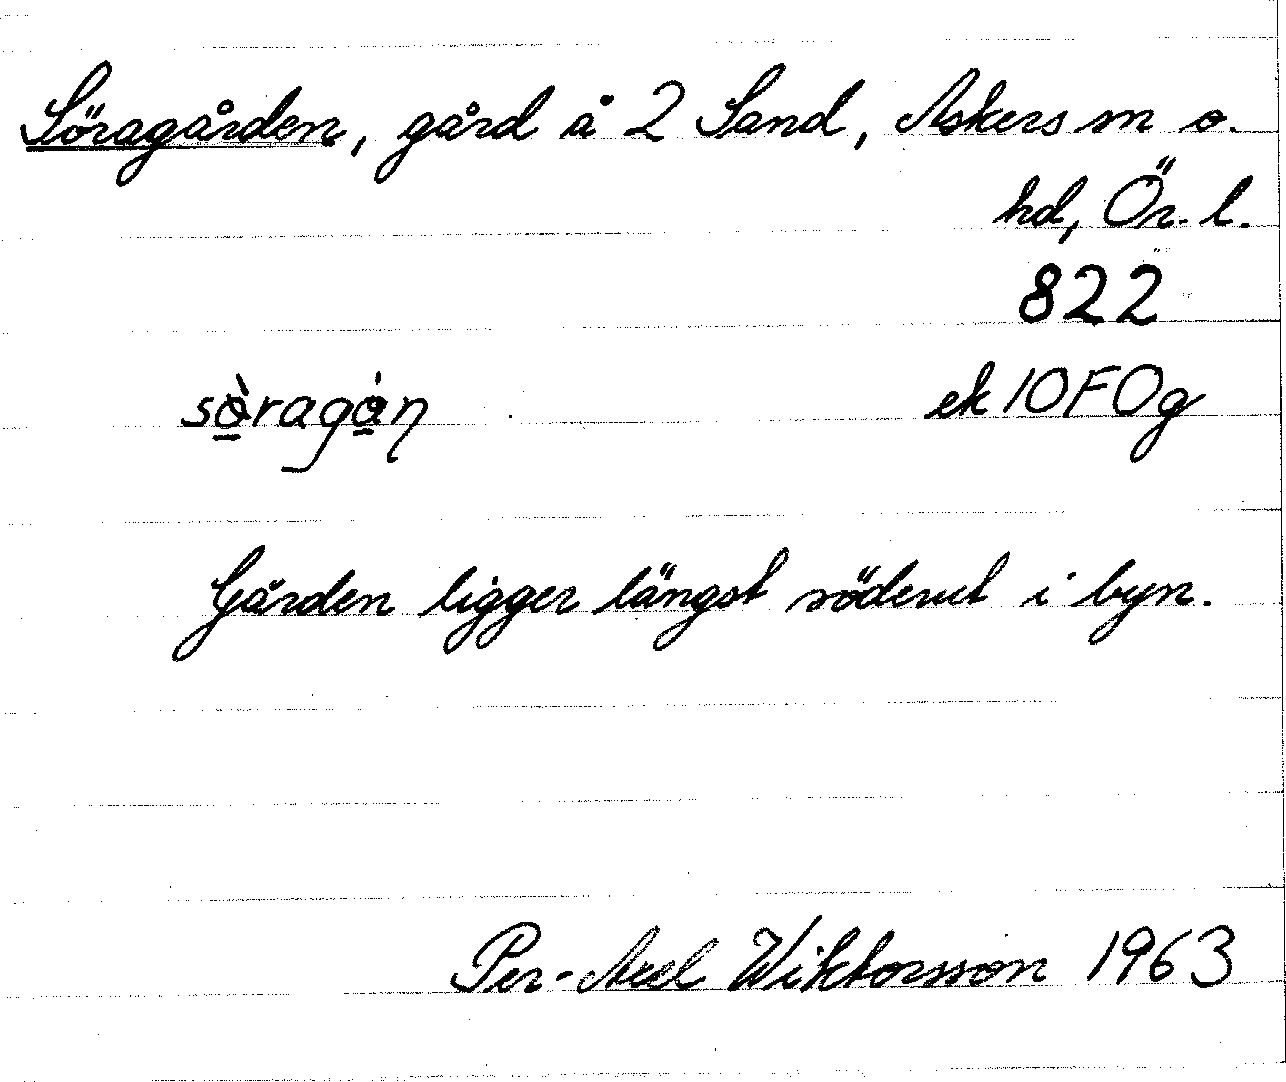 Söragården, gård å 2 Sand, Askers sn o.
hd, Ör. l.
822
sò̱ragȧ̱ṇ ek 10F0g
Gården ligger längst söderut i byn.
Per-Axel Wiktorsson 1963